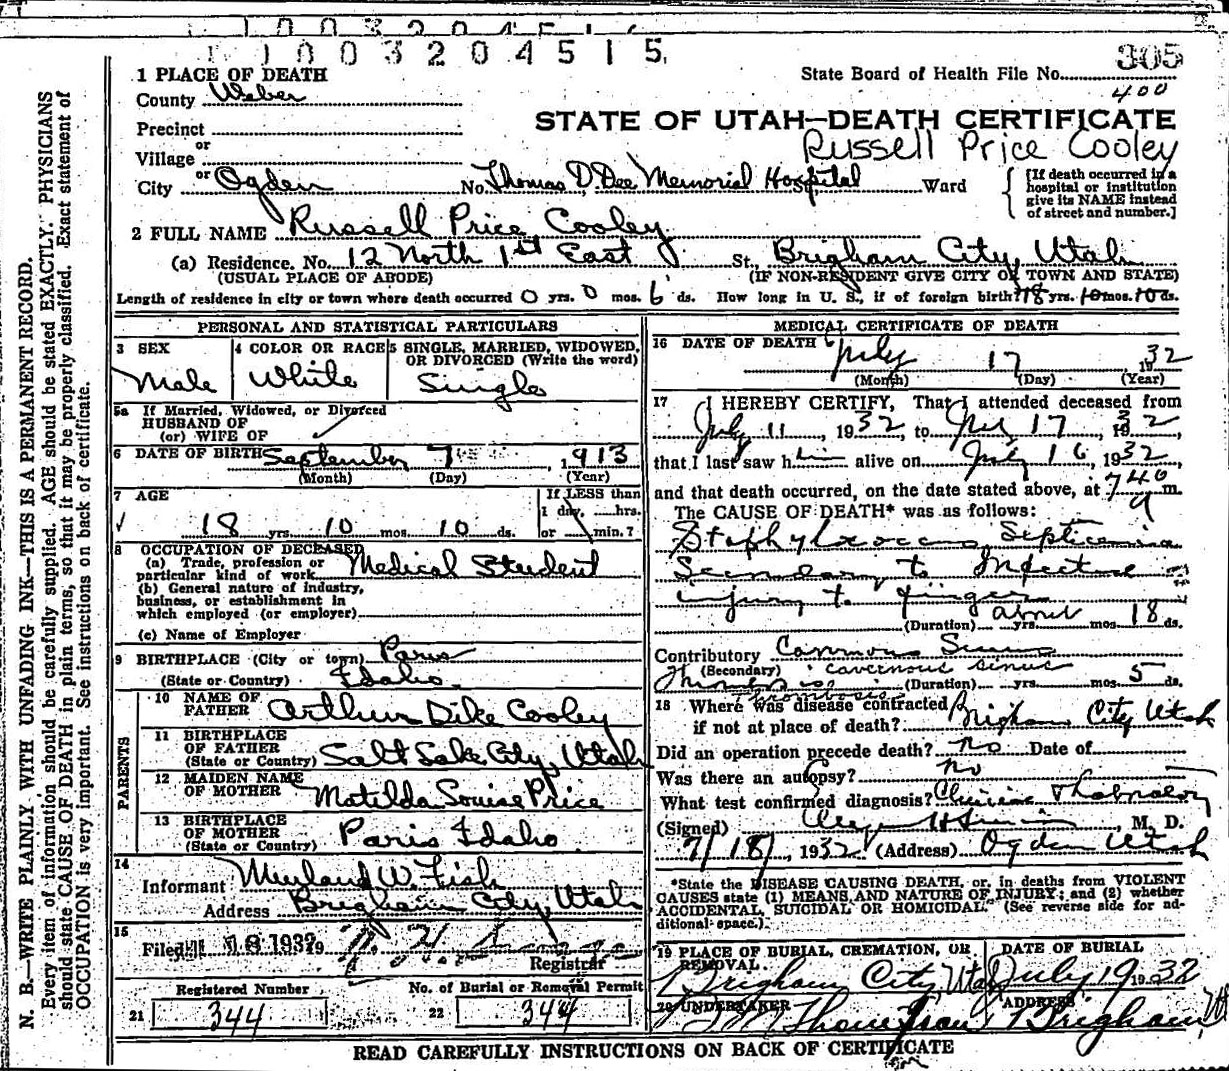 1003204515
305
State Board of Health File No.
400
1 PLACE OF DEATH
County Weber
STATE OF UTAH—DEATH CERTIFICATE
Precinct
or
Village
Russell Price Cooley
or
City Ogden No. Thomas D. Dee Memorial Hospital Ward
[If death occurred in a hospital or institution give its NAME instead of street and number.]
2 FULL NAME Russell Price Cooley
(a) Residence. No. 12 North 1st East St, Brigham City, Utah
(USUAL PLACE OF ABODE) (IF NON-RESIDENT GIVE CITY OR TOWN AND STATE)
Length of residence in city or town where death occurred 0 yrs. 0 mos. 6 ds. How long in U. S., if of foreign birth? 18 yrs. 10 mos. 10 ds.
PERSONAL AND STATISTICAL PARTICULARS
3 SEX
Male
4 COLOR OR RACE
White
5 SINGLE, MARRIED, WIDOWED, OR DIVORCED (Write the word)
Single
5a If Married, Widowed, or Divorced
HUSBAND OF
(or) WIFE OF
6 DATE OF BIRTH September 7, 1913
(Month) (Day) (Year)
7 AGE
18 yrs. 10 mos. 10 ds.
If LESS than
1 day, hrs.
or min.?
8 OCCUPATION OF DECEASED
(a) Trade, profession or
particular kind of work Medical Student
(b) General nature of industry,
business, or establishment in
which employed (or employer)
(c) Name of Employer
9 BIRTHPLACE (City or town) Paris
(State or Country) Idaho
PARENTS
10 NAME OF
FATHER Arthur Dike Cooley
11 BIRTHPLACE
OF FATHER
(State or Country) Salt Lake City, Utah
12 MAIDEN NAME
OF MOTHER Matilda Louise Price
13 BIRTHPLACE
OF MOTHER
(State or Country) Paris Idaho
14
Informant W. Fish
Address Brigham City, Utah
15
Filed JUL 18 1932 19
Registrar
Registered Number No. of Burial or Removal Permit
21 344 22 344
MEDICAL CERTIFICATE OF DEATH
16 DATE OF DEATH July 17 1932
(Month) (Day) (Year)
17 I HEREBY CERTIFY, That I attended deceased from
July 11, 1932, to July 17, 1932,
that I last saw him alive on July 16, 1932
and that death occurred, on the date stated above, at 740 a m.
The CAUSE OF DEATH* was as follows:
Staphylococcus Septicemia
Secondary to Infective
injury to finger
about
(Duration) yrs. mos. 18 ds.
Contributory Cavernous Sinus
(Secondary) cavernous sinus
Thrombosis (Duration) yrs. mos. 5 ds.
thrombosis
18 Where was disease contracted
if not at place of death? Brigham City Utah
Did an operation precede death? no Date of
Was there an autopsy? no
What test confirmed diagnosis?
(Signed) M. D.
7/18/, 1932 (Address) Ogden Utah
*State the DISEASE CAUSING DEATH, or, in deaths from VIOLENT
CAUSES state (1) MEANS AND NATURE OF INJURY; and (2) whether
ACCIDENTAL, SUICIDAL OR HOMICIDAL. (See reverse side for ad-
ditional space.)
19 PLACE OF BURIAL, CREMATION, OR
REMOVAL
Brigham City, Utah
DATE OF BURIAL
July 19 1932
20 UNDERTAKER
ADDRESS
Brigham,
READ CAREFULLY INSTRUCTIONS ON BACK OF CERTIFICATE
N. B.—WRITE PLAINLY WITH UNFADING INK—THIS IS A PERMANENT RECORD.
Every item of information should be carefully supplied. AGE should be stated EXACTLY. PHYSICIANS
should state CAUSE OF DEATH in plain terms, so that it may be properly classified. Exact statement of
OCCUPATION is very important. See instructions on back of certificate.